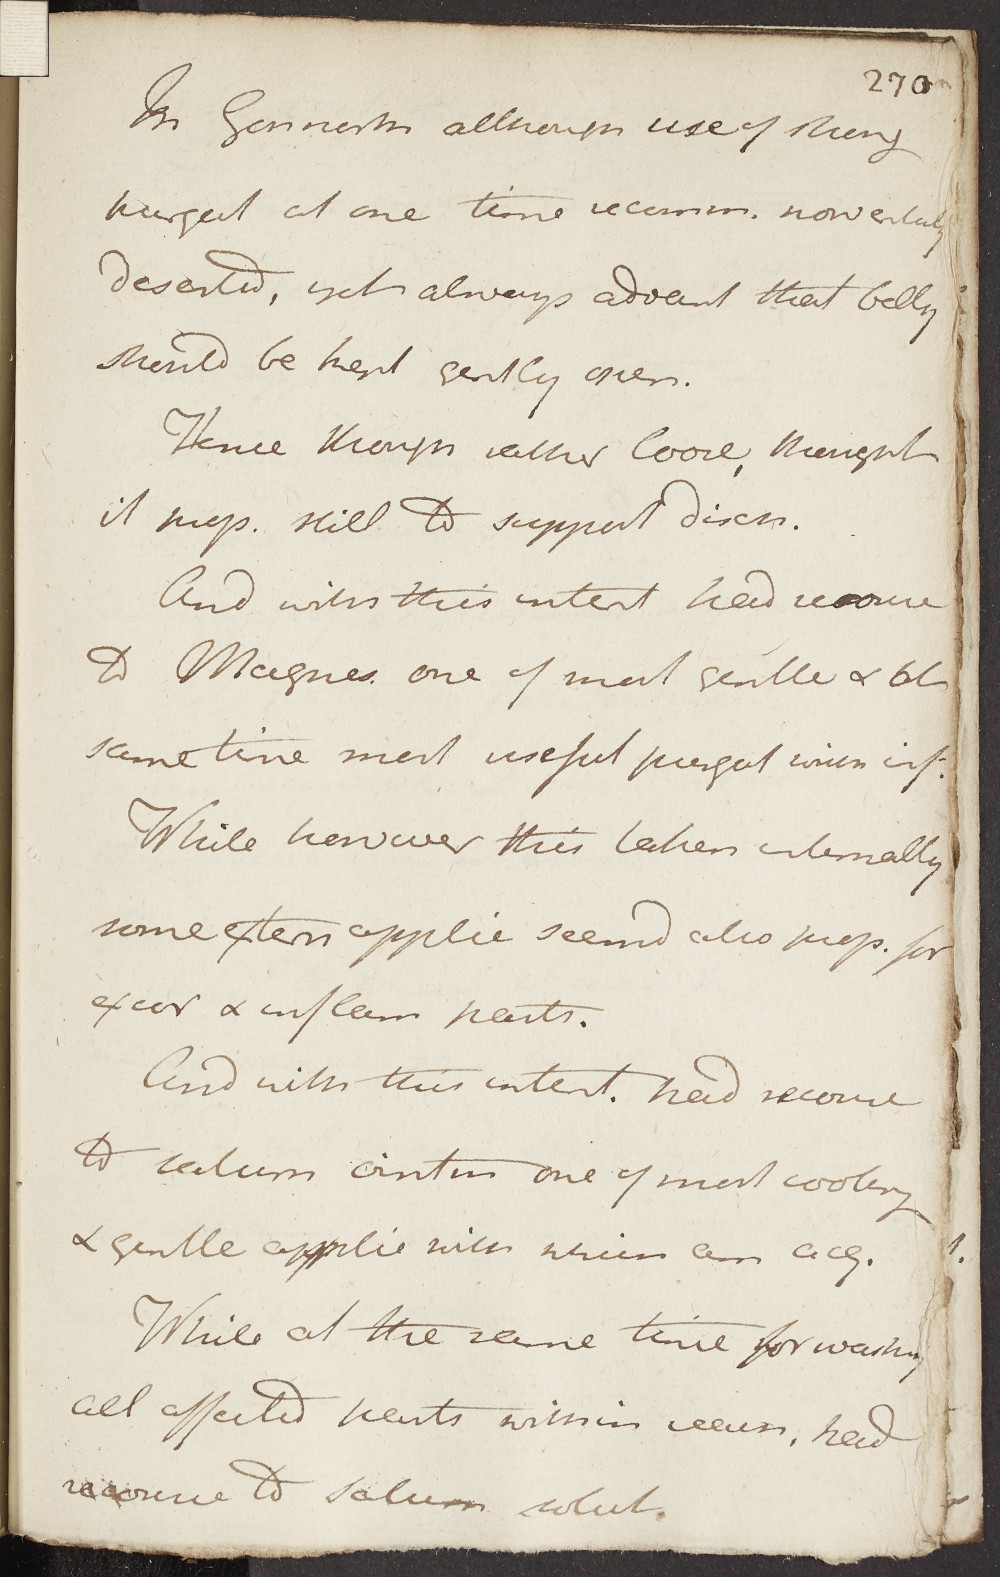 270
In Gonnorh although use of strong
purgat at one time recomm. now entirely
deserted, yet always advant that belly
should be kept gently open.
Hence though rather loose, thought
it prop. still to support disch.
And with this intent had recourse
to Magnes. one of most gentle & at
same time most useful purgat with inf.
While however this taken internally
some extern applic seemd also prop. for
excor & inflam parts.
And with this intent. had recourse
to saturn ointm one of most cooling
& gentle applic with which am acq.
While at the same time for washing
all affected parts within reach, had
recourse to saturn solut.